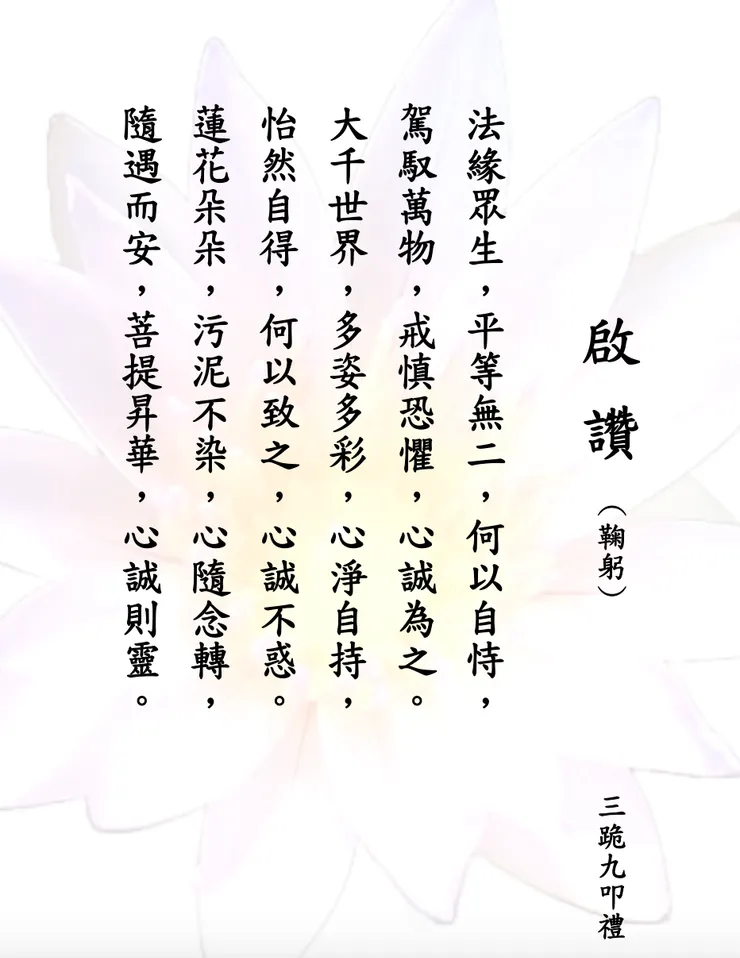 啟讚（鞠躬）
三跪九叩禮
法緣眾生，平等無二，何以自恃，
駕馭萬物，戒慎恐懼，心誠為之。
大千世界，多姿多彩，心淨自持，
怡然自得，何以致之，心誠不惑。
蓮花朵朵，污泥不染，心隨念轉，
隨遇而安，菩提昇華，心誠則靈。